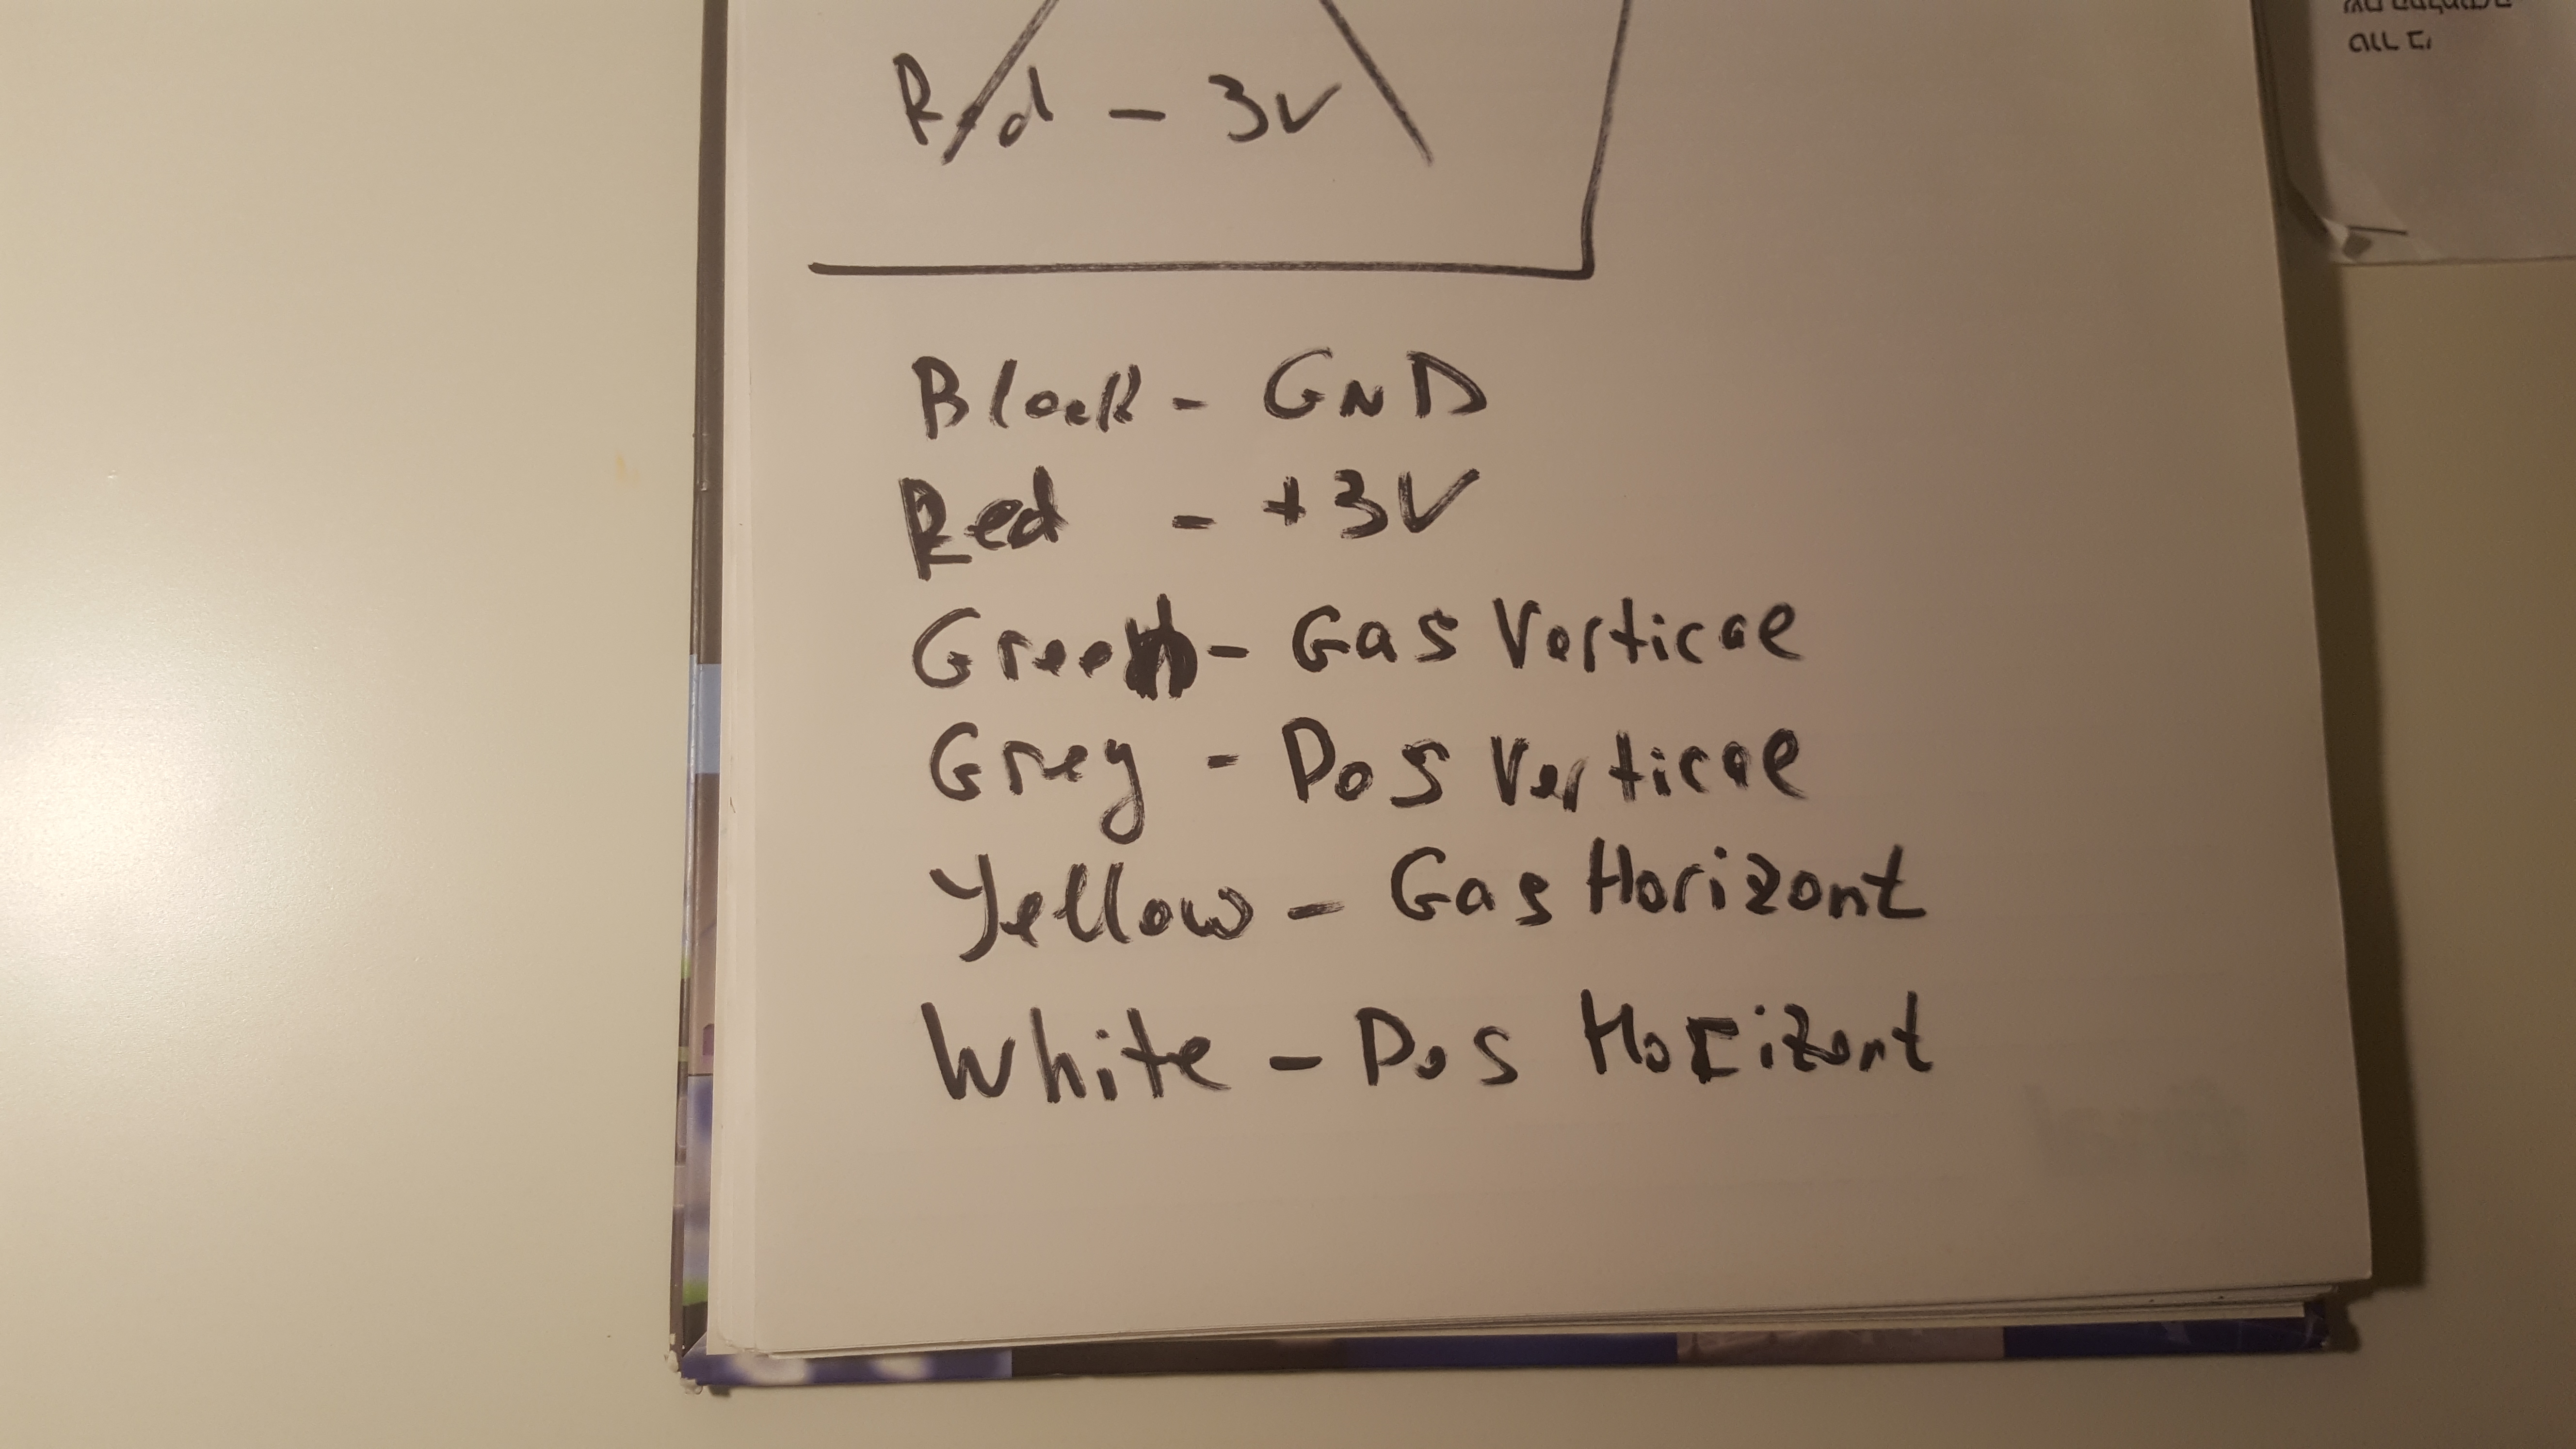 Red - 3V
Black - GND
Red - +3V
Green - Gas Vertical
Grey - Pos Vertical
Yellow - Gas Horizont
White - Pos Horizont